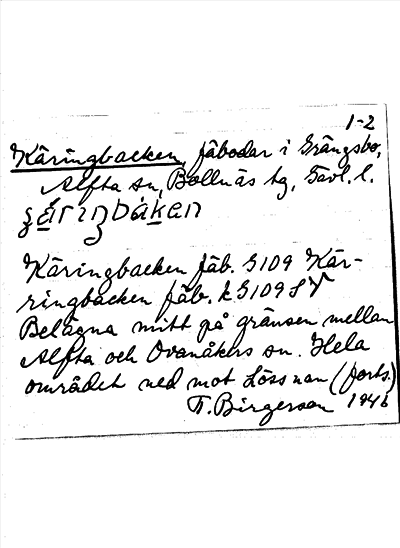 1-2
Käringbacken, fäbodar i Grängsbo,
Alfta sn, Bollnäs tg, Gävl. l.
Käringbacken fäb. G109 Kär-
ringbacken fäb. k G109 SV
Belägna mitt på gränsen mellan
Alfta och Ovanåkers sn. Hela
området ned mot Lössnan (forts.)
T. Birgerson 1946